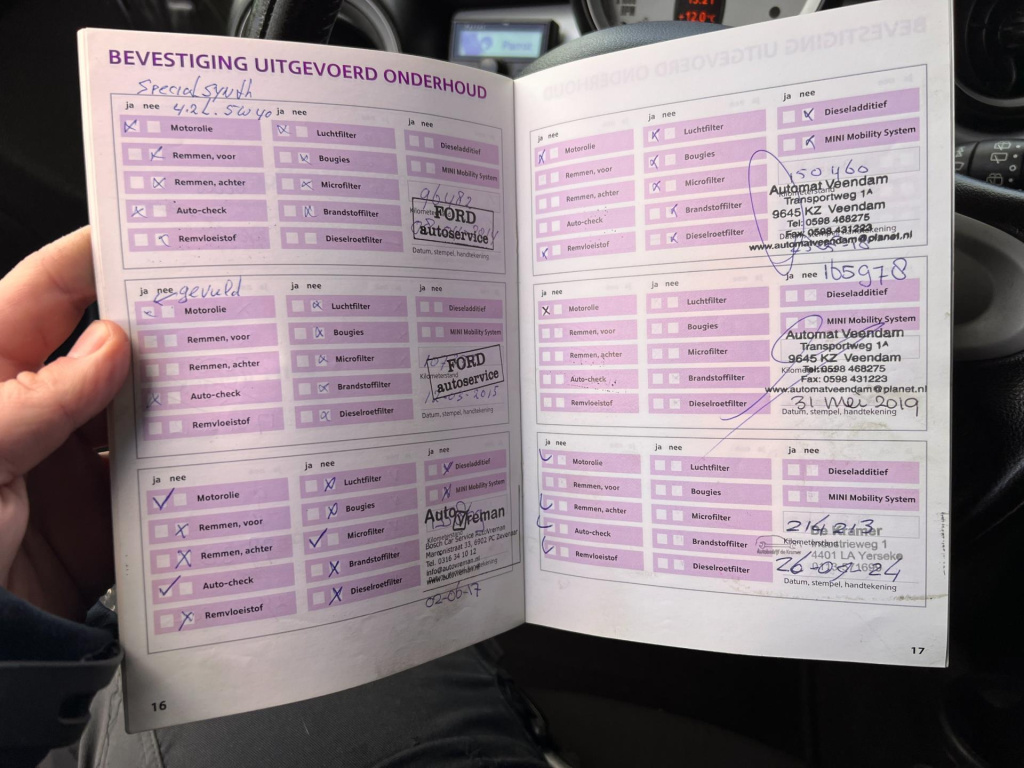 BEVESTIGING UITGEVOERD ONDERHOUD
Special Synth
4.2 L. 5W40
ja nee
Motorolie
Remmen, voor
Remmen, achter
Auto-check
Remvloeistof
ja nee
Luchtfilter
Bougies
Microfilter
Brandstoffilter
Dieselroetfilter
ja nee
Dieseladditief
MINI Mobility System
96482
FORD
autoservice
Datum, stempel, handtekening
ja nee
gevuld
Motorolie
Remmen, voor
Remmen, achter
Auto-check
Remvloeistof
ja nee
Luchtfilter
Bougies
Microfilter
Brandstoffilter
Dieselroetfilter
ja nee
Dieseladditief
MINI Mobility System
FORD
autoservice
Datum, stempel, handtekening
ja nee
Motorolie
Remmen, voor
Remmen, achter
Auto-check
Remvloeistof
ja nee
Luchtfilter
Bougies
Microfilter
Brandstoffilter
Dieselroetfilter
ja nee
Dieseladditief
MINI Mobility System
Auto Vreman
Bosch Car Service
Tel. 0316 34 10 12
02-06-17
16
ja nee
Motorolie
Remmen, voor
Remmen, achter
Auto-check
Remvloeistof
ja nee
Luchtfilter
Bougies
Microfilter
Brandstoffilter
Dieselroetfilter
ja nee
Dieseladditief
MINI Mobility System
150460
Automat Veendam
Transportweg 1A
9645 KZ Veendam
Tel: 0598 468275
Fax: 0598 431223
www.automatveendam@planet.nl
ja nee
Motorolie
Remmen, voor
Remmen, achter
Auto-check
Remvloeistof
ja nee
Luchtfilter
Bougies
Microfilter
Brandstoffilter
Dieselroetfilter
ja nee
165978
Dieseladditief
MINI Mobility System
Automat Veendam
Transportweg 1A
9645 KZ Veendam
Tel: 0598 468275
Fax: 0598 431223
www.automatveendam@planet.nl
31 MEI 2019
Datum, stempel, handtekening
ja nee
Motorolie
Remmen, voor
Remmen, achter
Auto-check
Remvloeistof
ja nee
Luchtfilter
Bougies
Microfilter
Brandstoffilter
Dieselroetfilter
ja nee
Dieseladditief
MINI Mobility System
214213
de Kramer
Industrieweg 1
4401 LA Yerseke
Datum, stempel, handtekening
17
+12.0